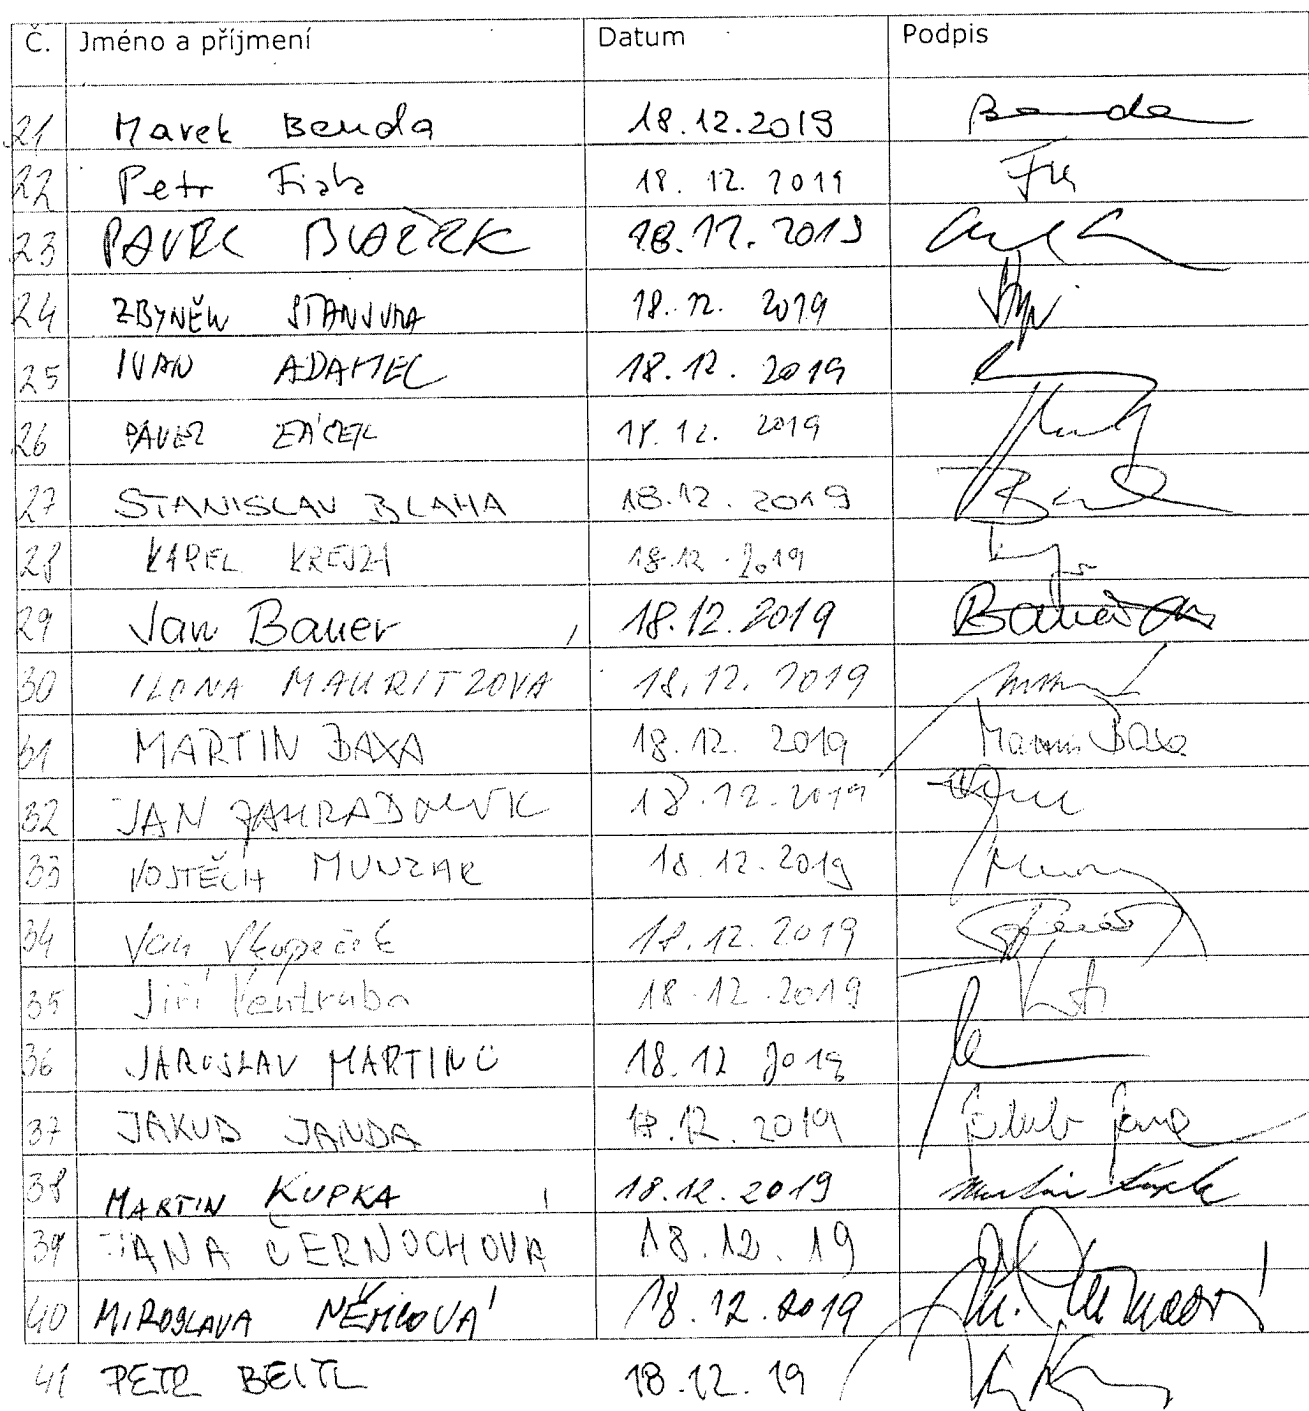 Č. Jméno a příjmení Datum Podpis
21 Marek Benda 18.12.2019 Benda
22 Petr Fiala 18. 12. 2019
23 PAVEL BLAŽEK 18.12.2019
24 ZBYNĚK STANJURA 18.12. 2019
25 IVAN ADAMEC 18.12. 2019
26 PAVEL ŽÁČEK 18.12. 2019
27 STANISLAV BLAHA 18.12. 2019
28 KAREL KREJZA 18.12.2019
29 Jan Bauer 18.12.2019 Bauer
30 ILONA MAURITZOVA 18.12.2019
31 MARTIN BAXA 18.12. 2019 Martin Baxa
32 JAN ZAHRADNÍK 18.12.2019
33 VOJTĚCH MUNZAR 18.12.2019
34 Jan Skopeček 18.12.2019
35 Jiří Ventruba 18.12.2019
36 JAROSLAV MARTINŮ 18.12 2019
37 JAKUB JANDA 18.12. 2019 Jakub Janda
38 MARTIN KUPKA 18.12.2019 Martin Kupka
39 JANA ČERNOCHOVÁ 18.12.19
40 MIROSLAVA NĚMCOVÁ 18.12.2019 M. Němcová
41 PETR BEITL 18.12.19